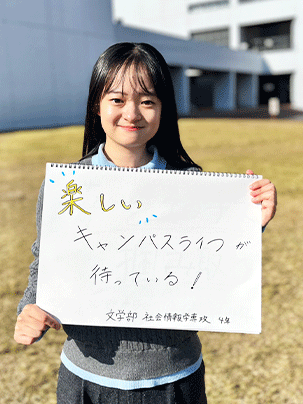 楽しい
キャンパスライフが
待っている!
文学部 社会情報学専攻 4年